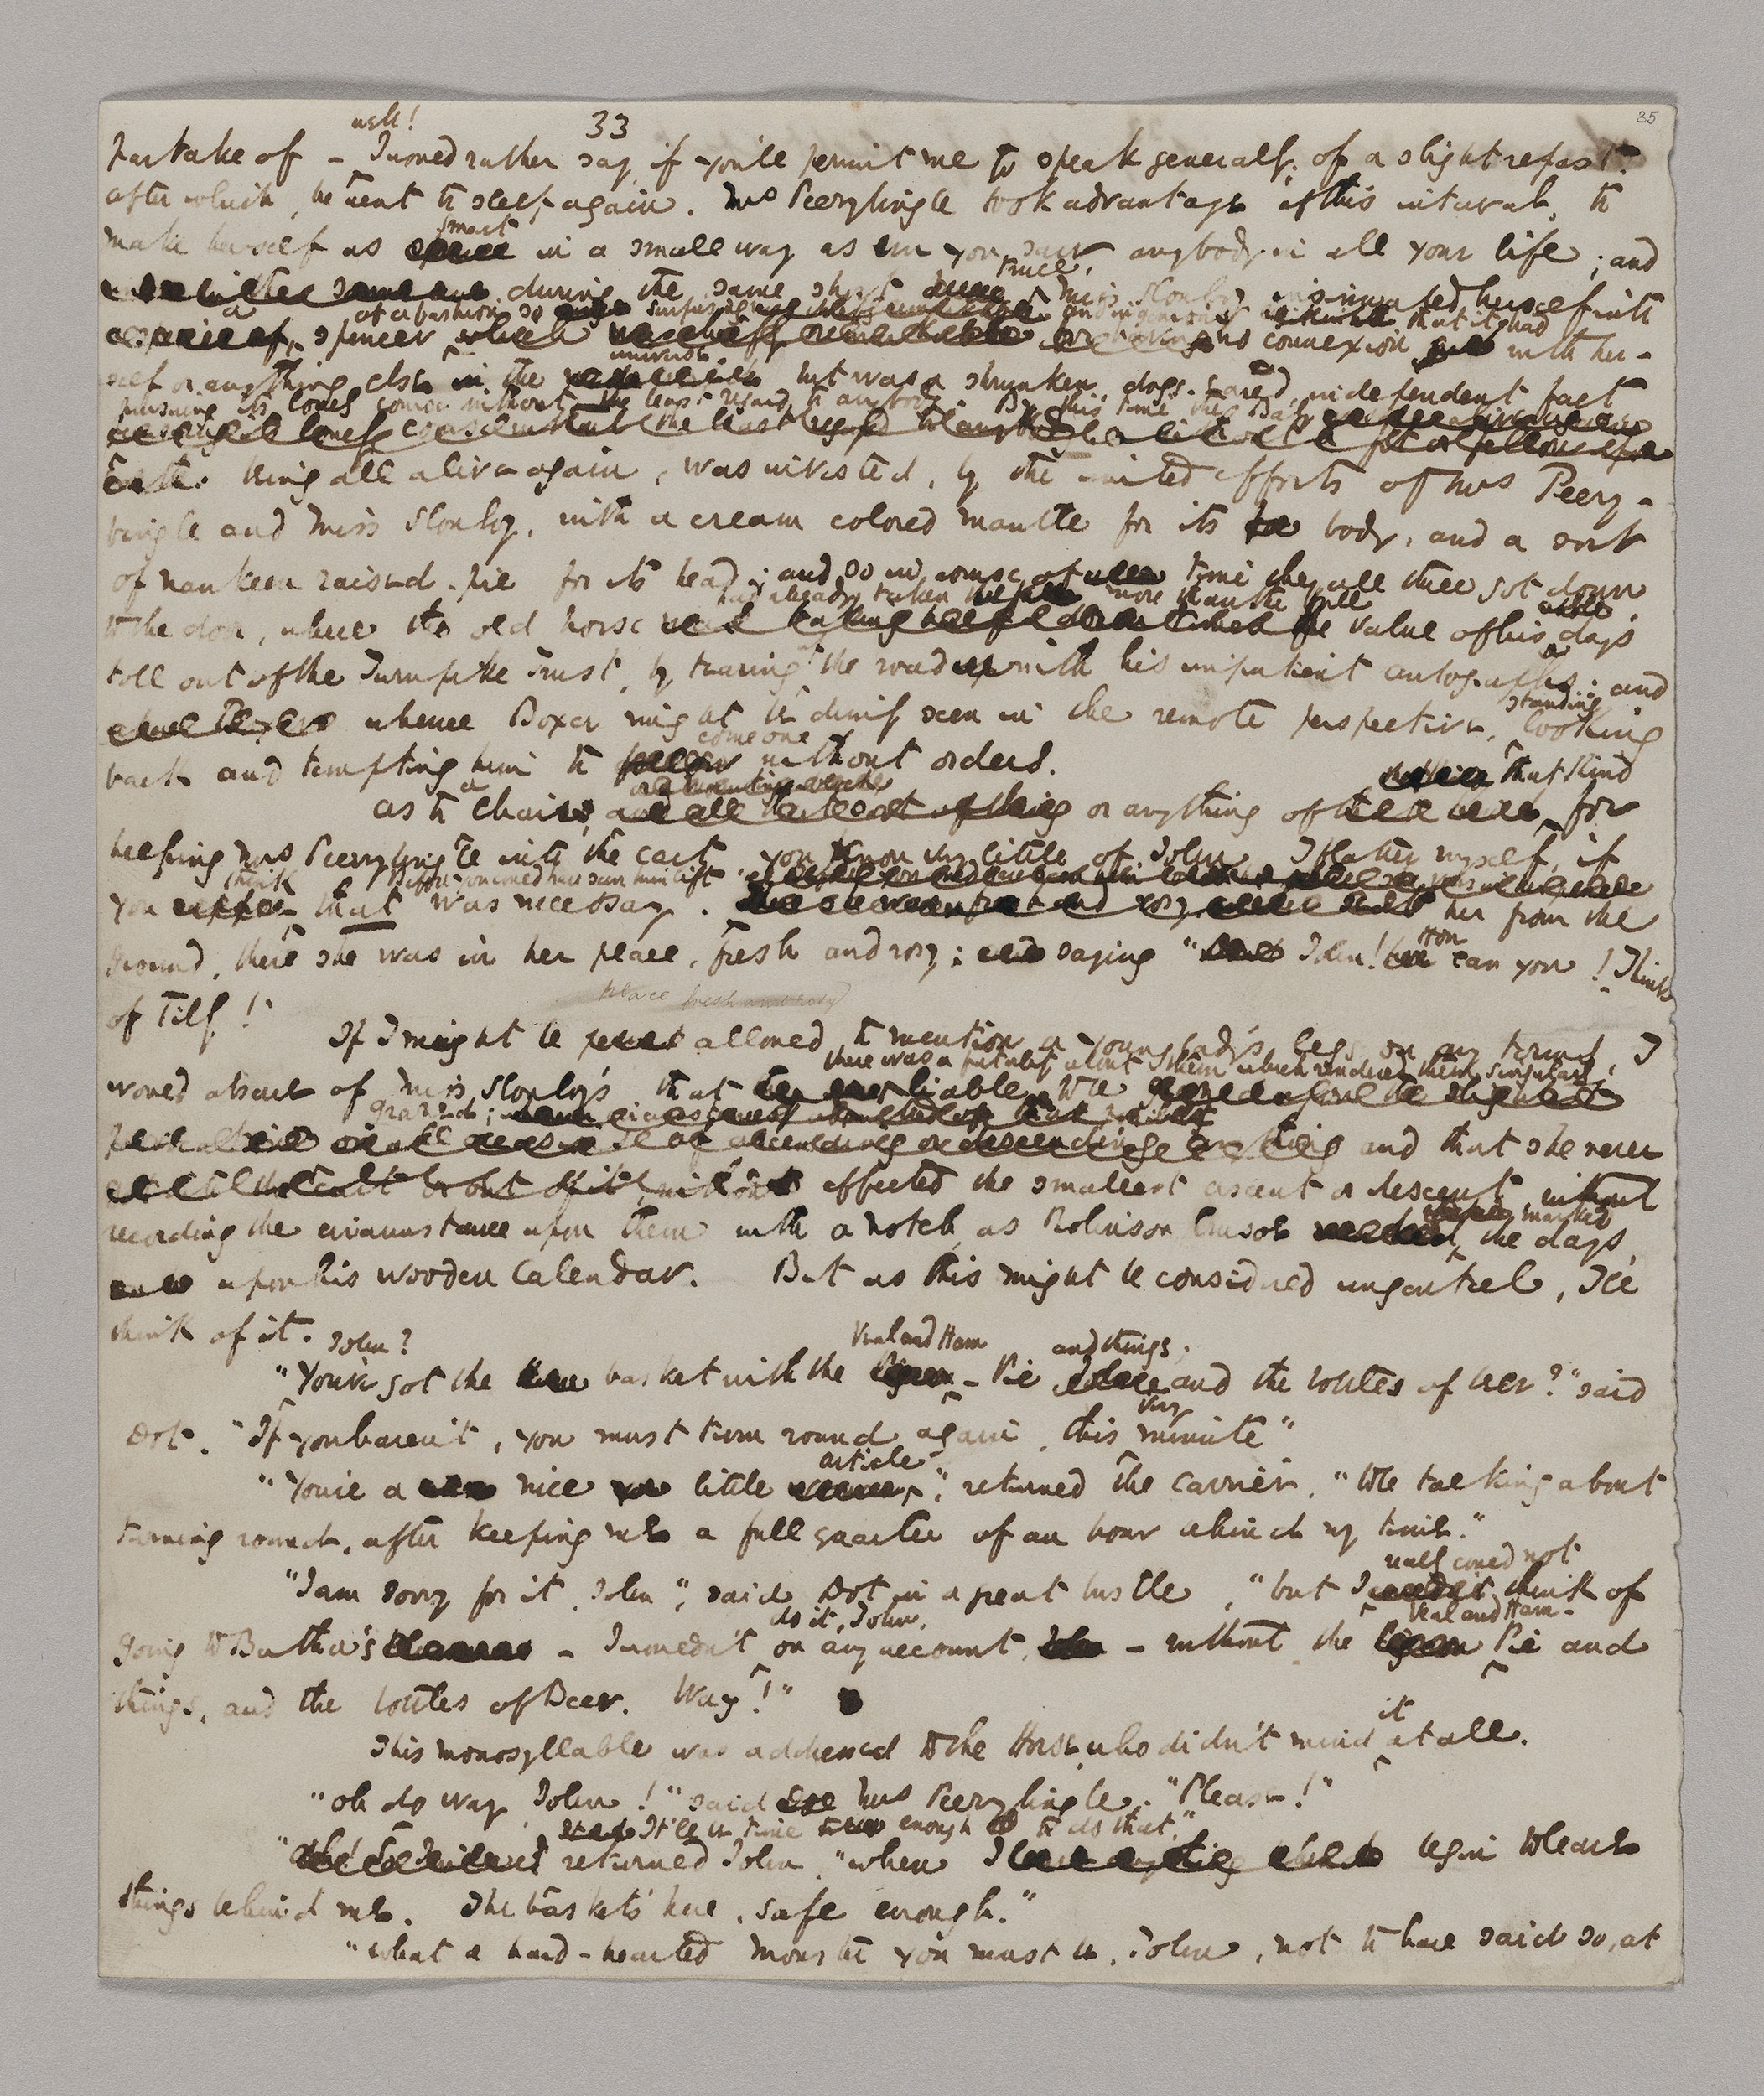 33
35
partake of – well! I would rather say, if you'll permit me to speak generally, of a slight repast.
after which, he went to sleep again. Mrs Peerybingle took advantage of this interval, to
make herself as smart in a small way as ever you saw anybody in all your life; and
during the same short truce, Miss Slowboy insinuated herself into
a spencer of a fashion so surprising and ingenious that it had no connexion with her-
self or anything else in the universe, but was a shrunken, dogs-eared, independent fact
pursuing its lonely course without the least regard to anybody. By this time, the Baby
being all alive again, was invested, by the united efforts of Mrs Peery-
bingle and Miss Slowboy, with a cream colored mantle for its body, and a sort
of nankeen raised-pie for its head; and so in course of time they all three got down
to the door, where the old horse had already taken more than the full value of his day's
toll out of the Turnpike Trust, by tearing up the road with his impatient autographs; and
whence Boxer might be dimly seen in the remote perspective, standing looking
back and tempting him to come on without orders.
as to a chair, or anything of that kind for
helping Mrs Peerybingle into the cart, you know very little of John, I flatter myself, if
you think that was necessary. Before you could have seen him lift her from the
ground, there she was in her place, fresh and rosy; saying "John! How can you! Think
of Tilly!"
place fresh and rosy
If I might be allowed to mention a young lady's legs, on any terms, I
would observe of Miss Slowboy's that there was a fatality about them which rendered them singularly liable to be
grazed; and that she never
effected the smallest ascent or descent, without
recording the circumstance upon them with a notch, as Robinson Crusoe marked the days
upon his wooden Calendar. But as this might be considered ungenteel, I'll
think of it.
"John? You've got the basket with the Veal and Ham-Pie and things; and the bottles of beer?" said
Dot. "If you haven't, you must turn round again, this very minute"
"You're a nice little article", returned the Carrier, "to be talking about
turning round, after keeping me a full quarter of an hour behind my time."
"I am sorry for it, John", said Dot in a great bustle, "but I really could not think of
going to Bertha's – I wouldn't do it, John, on any account, – without the Veal and Ham-Pie and
things, and the bottles of Beer. Way!"
This monosyllable was addressed to the Horse, who didn't mind it at all.
"oh do way, John!" said Mrs Peerybingle. "Please!"
"It'll be time enough to do that," returned John, "when I begin to leave
things behind me. The basket's here, safe enough."
"what a hard-hearted monster you must be, John, not to have said so, at